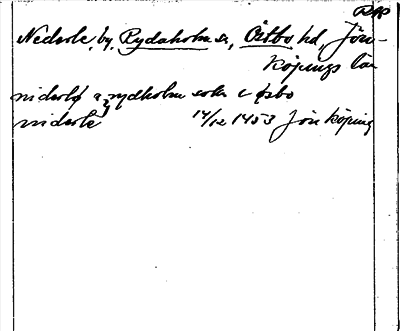 RAP
Nederle, by, Rydaholm s., Östbo hd, Jön-
köpings län
niderlø a rydholm sokn i øsbo
niderle 14/12 1453 Jönköping